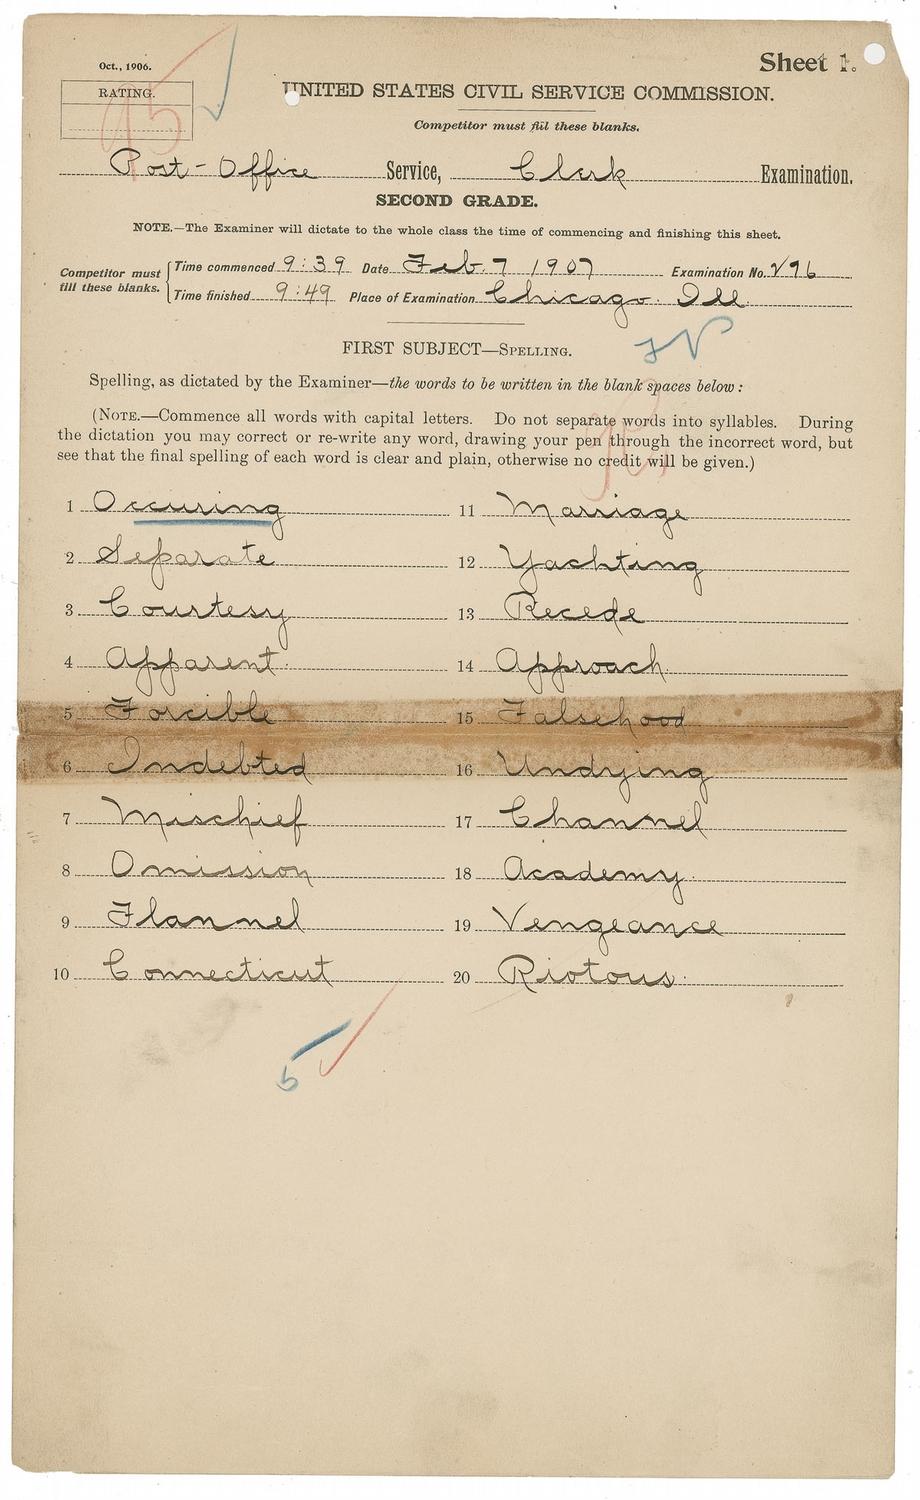 Oct., 1906.
Sheet 1.
RATING.
95
UNITED STATES CIVIL SERVICE COMMISSION.
Competitor must fill these blanks.
Post-Office Service, Clerk Examination.
SECOND GRADE.
NOTE.—The Examiner will dictate to the whole class the time of commencing and finishing this sheet.
Competitor must fill these blanks.
Time commenced 9:39 Date Feb. 7 1907 Examination No. 276
Time finished 9:49 Place of Examination Chicago. Ill.
FIRST SUBJECT—SPELLING.
Spelling, as dictated by the Examiner—the words to be written in the blank spaces below:
(NOTE.—Commence all words with capital letters. Do not separate words into syllables. During
the dictation you may correct or re-write any word, drawing your pen through the incorrect word, but
see that the final spelling of each word is clear and plain, otherwise no credit will be given.)
1 Occuring
2 Separate
3 Courtesy
4 Apparent.
5 Forcible
6 Indebted
7 Mischief
8 Omission
9 Flannel
10 Connecticut
11 Marriage
12 Yachting
13 Recede
14 Approach.
15 Falsehood
16 Undying
17 Channel
18 Academy.
19 Vengeance
20 Riotous.
5